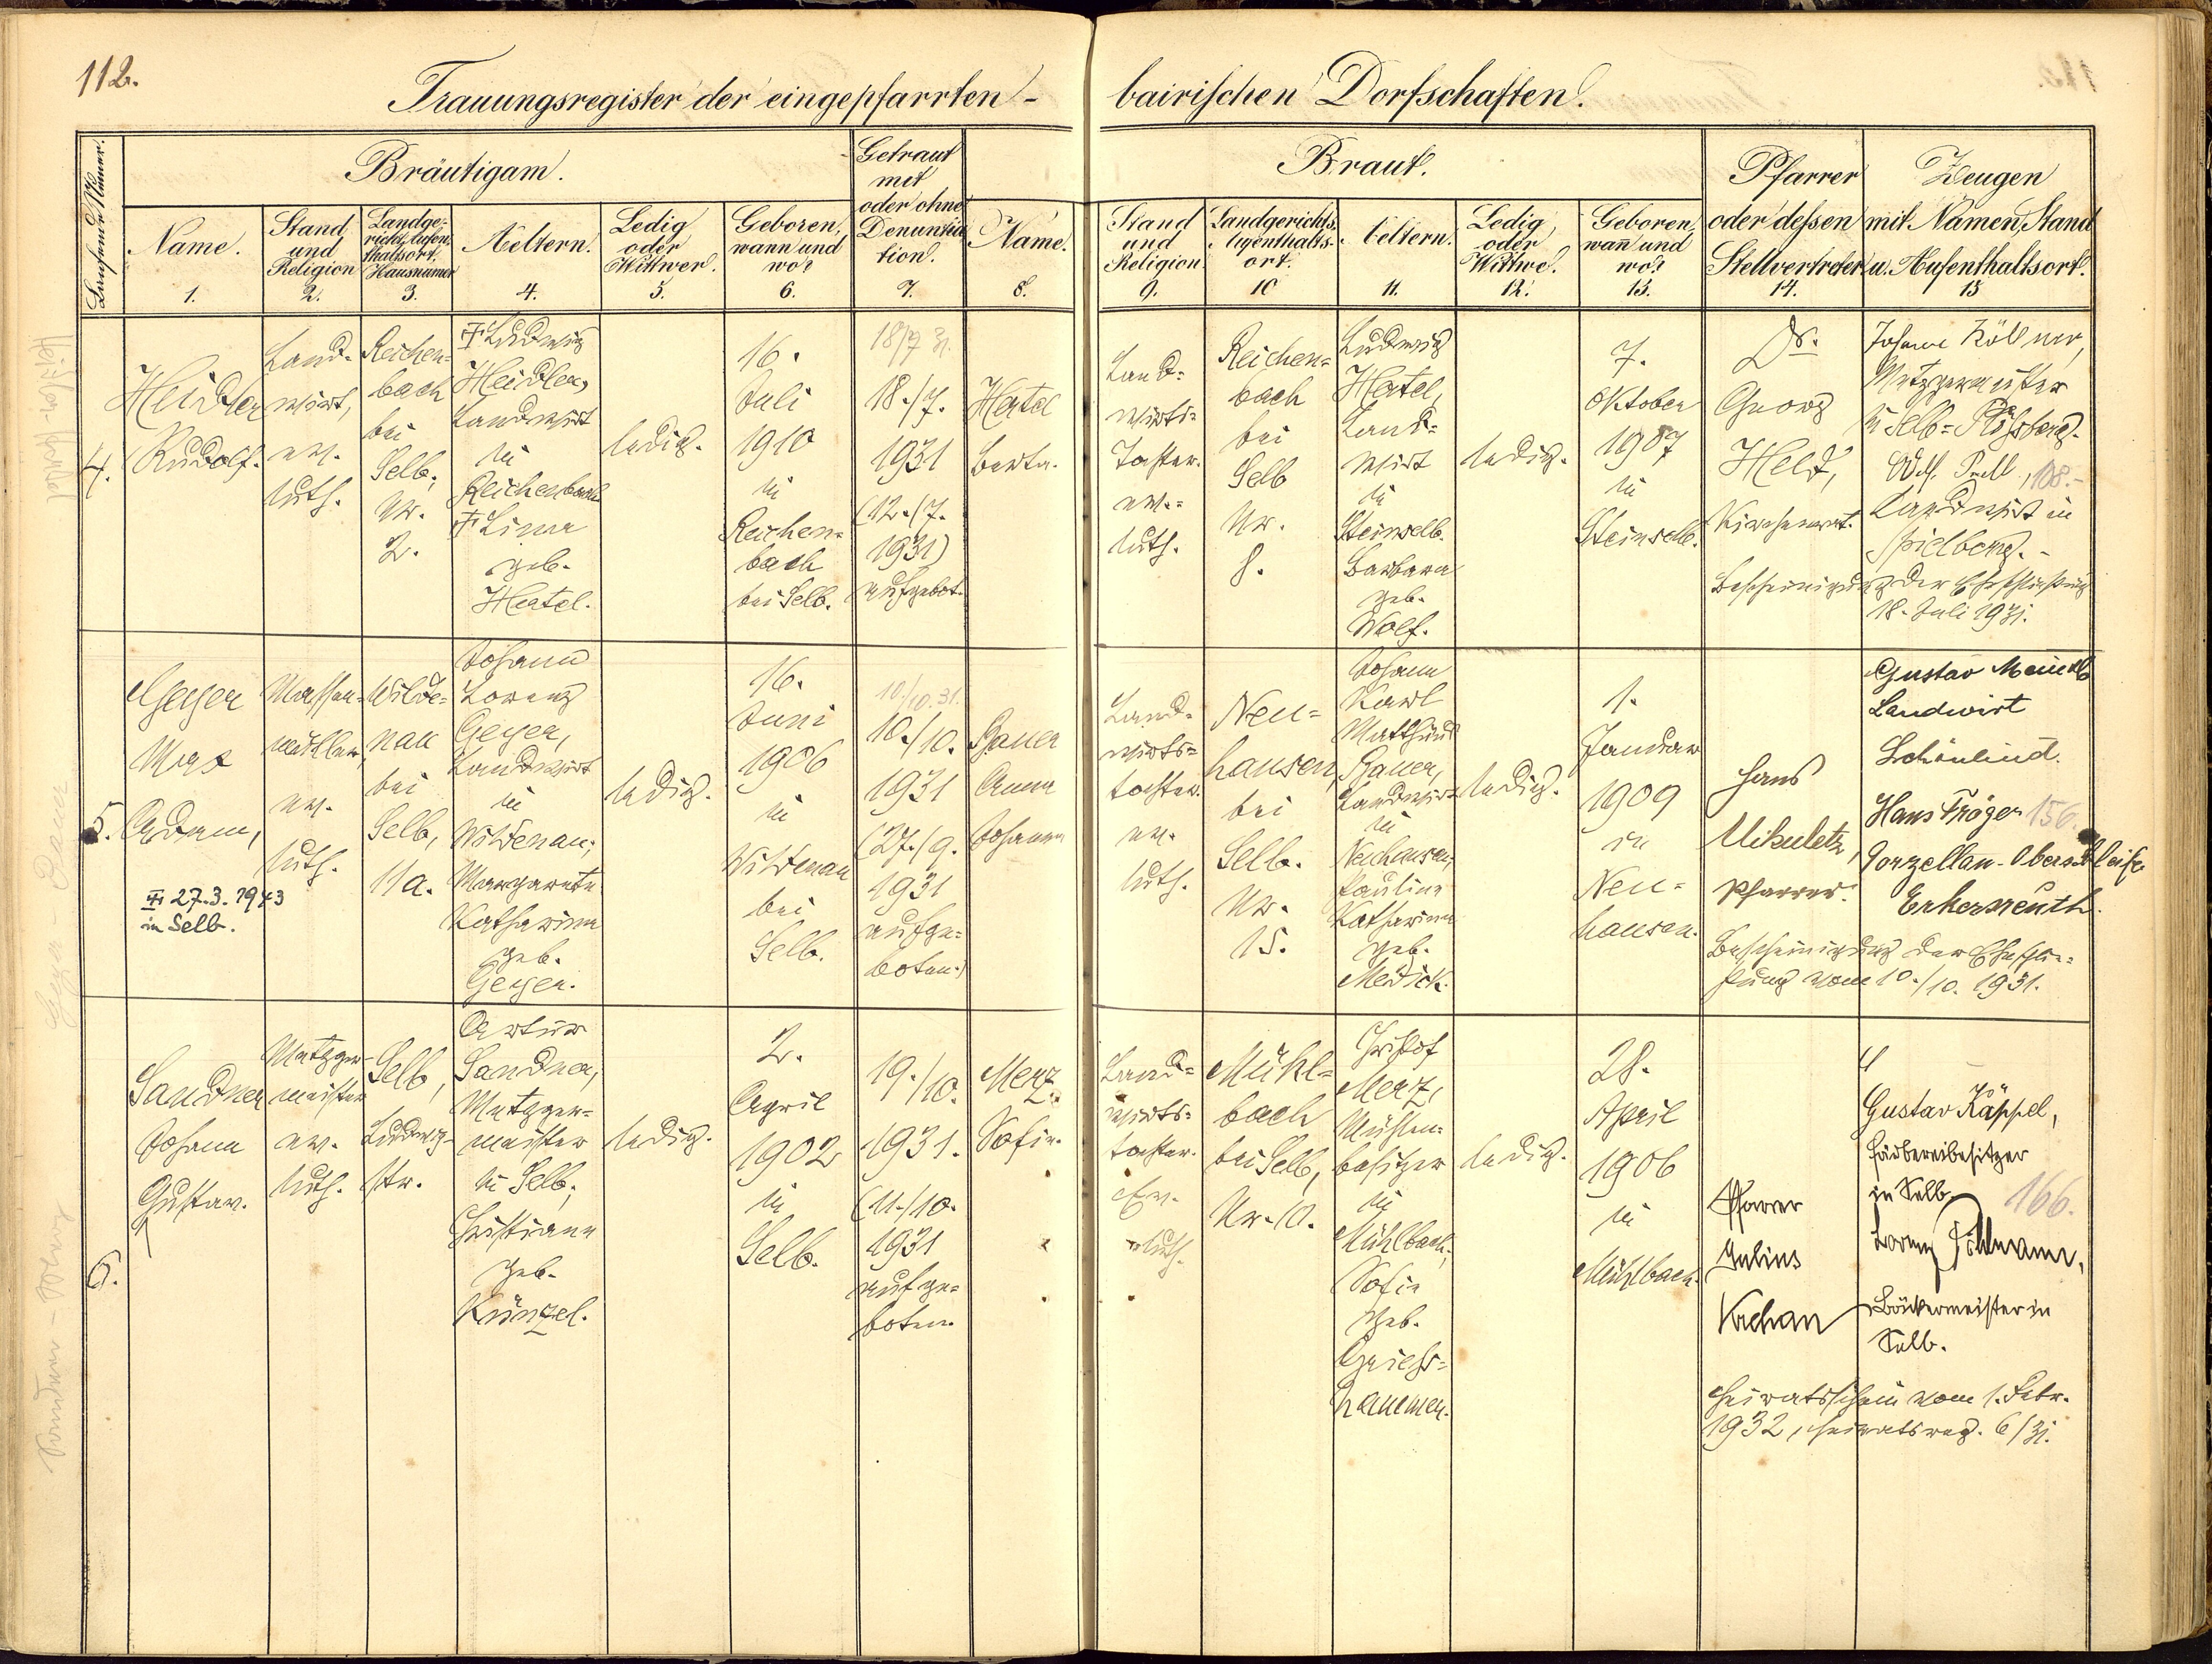 112.
Trauungsregister der eingepfarrten-
bairischen Dorfschaften.
Laufende Numer.
Bräutigam.
Getraut
mit
oder ohne
Denuntia
tion.
7.
Name.
1.
Stand
und
Religion
2.
Landge-
richt, Aufen-
thaltsort,
Hausnumer
3.
Aeltern.
4.
Ledig
oder
Wittwer.
5.
Geboren,
wann und
wo?
6.
Name.
8.
Braut.
Stand
und
Religion
9.
Landgerichts,
Aufenthalts-
ort.
10
Aeltern.
11.
Ledig,
oder
Wittwe.
12.
Geboren,
wan̄ und
wo?
13.
Pfarrer
oder dessen
Stellvertreter
14.
Zeugen
mit Namen, Stand
u. Aufenthaltsort.
15
4.
Heidler
Rudolf.
Land-
wirt,
ev.
luth.
Reichen-
bach
bei
Selb,
Nr.
2.
Ludwig
Heidler,
Landwirt
in
Reichenbach
Lina
geb.
Hertel.
ledig.
16.
Juli
1910
in
Reichen-
bach
bei Selb.
18/7 31.
18./7.
1931
(12./7.
1931)
aufgebot.
Hertel
Berta.
Land-
wirts-
tochter.
ev.-
luth.
Reichen-
bach
bei
Selb
Nr.
8.
Ludwig
Hertel,
Land-
wirt
in
Steinselb.
Barbara
geb.
Wolf.
ledig.
7.
Oktober
1907
in
Steinselb.
Dr.
Georg
Held,
Kirchenrat.
Johann Köllner,
Metzgermeister
in Selb-Plößberg.
108.-
Landwirt in
Spielberg.-
Bescheinigung der Eheschließung
18. Juli 1931.
5.
Geyer
Max
Adam,
27.3.1943
in Selb.
Massen-
müller,
ev.
luth.
Wilde-
nau
bei
Selb,
11a.
Johann
Lorenz
Geyer,
Landwirt
in
Wildenau;
Margarete
Katharina
geb.
Geyer.
ledig.
16.
Juni
1906
in
Wildenau
bei
Selb.
10./10.31.
10./10.
1931
(27./9.
1931
aufge-
boten.)
Bauer
Anna
Johanna
Land-
wirts-
tochter.
ev.
luth.
Neu-
hausen,
bei
Selb.
Nr.
15.
Johann
Karl
Matthäus
Bauer,
Landwirt
in
Neuhausen,
Pauline
Katharina
geb.
Medick.
ledig.
1.
Januar
1909
in
Neu-
hausen.
Hans
Mikuletz,
Pfarrer.
Gustav
Landwirt
Schönlind.
Hans Fröger 156.
Porzellan-Oberschleifer
Erkersreuth.
Bescheinigung der Eheschlie-
ßung vom 10./10. 1931.
6.
Sandner
Johann
Gustav.
Metzger-
meister
ev.
luth.
Selb,
Ludwig-
str.
Artur
Sandner,
Metzger-
meister
in Selb,
Christiane
geb.
Künzel.
ledig.
2.
April
1902
in
Selb.
19./10.
1931.
(11./10.
1931
aufge-
boten.
Merz
Sofie.
Land-
wirts-
tochter.
Ev.
luth.
Mühl-
bach
bei Selb,
Nr. 10.
Christof
Merz,
Mühlen-
besitzer
in
Mühlbach;
Sofie
geb.
Griess-
hammer.
ledig.
28.
April
1906
in
Mühlbach.
Pfarrer
Julius
Gustav Käppel,
Färbereibesitzer
in Selb.
166.
Lorenz Pöhlmann,
Bäckermeister in
Selb.
Heiratsschein vom 1. Febr.
1932, Heiratsreg. 6/31.
Heidler-Hertel
Geyer-Bauer
Sandner-Merz